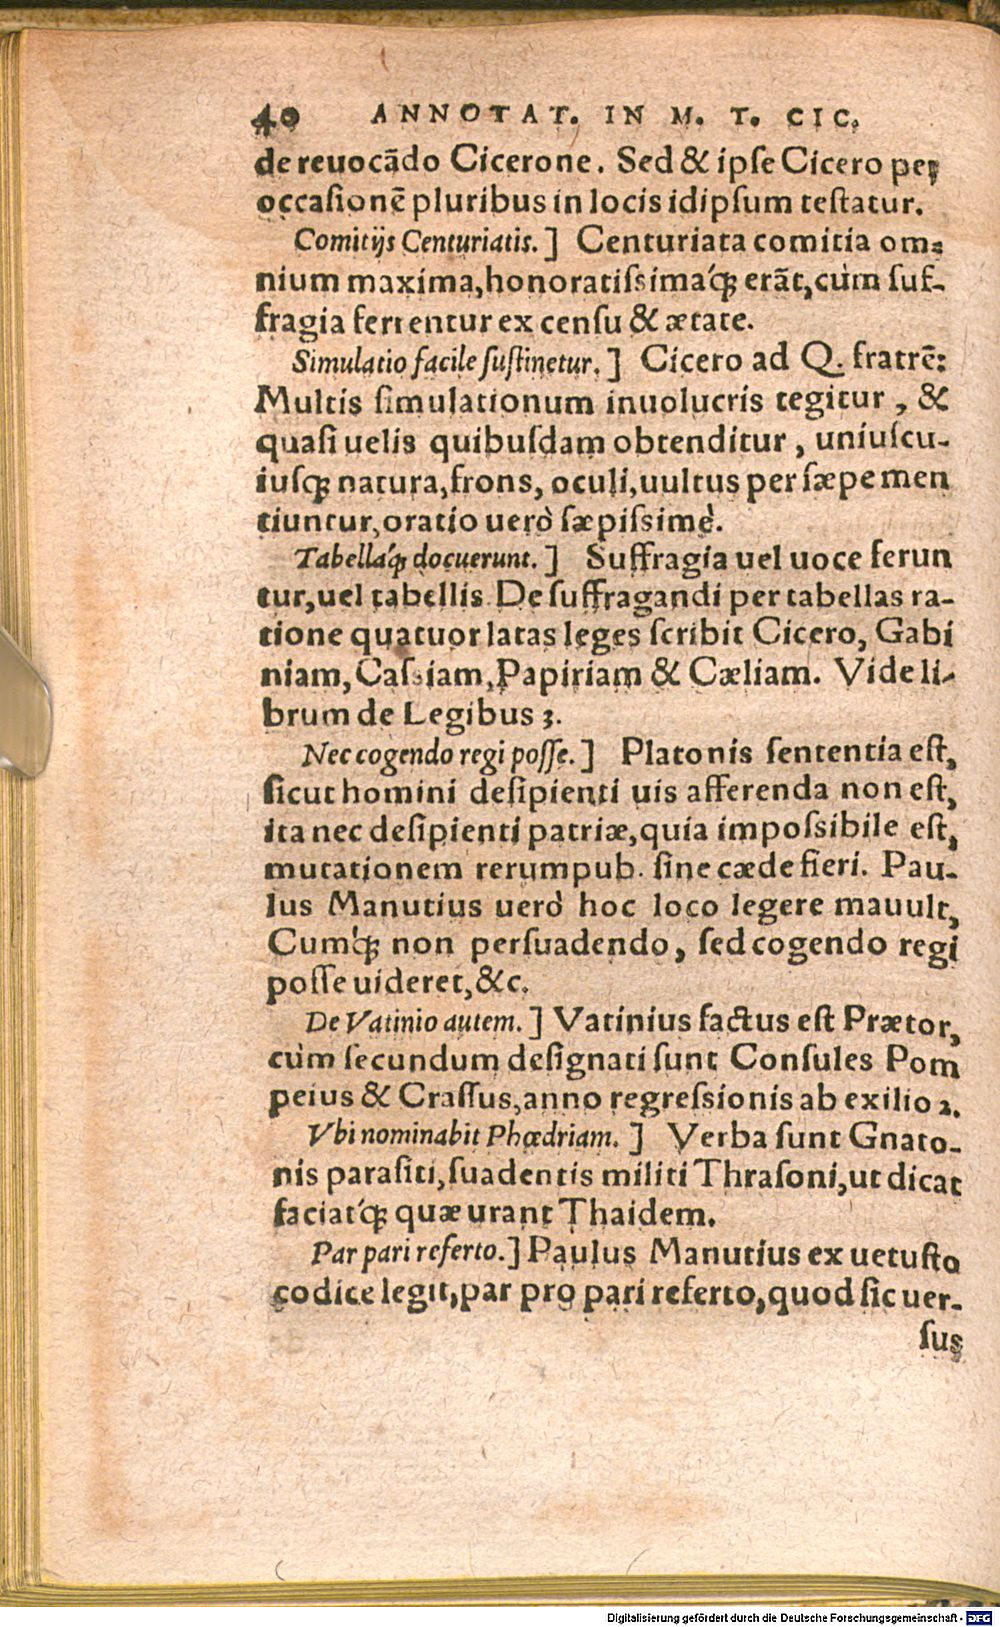 40 ANNOTAT. IN M. T. CIC.
de reuocãdo Cicerone. Sed & ipse Cicero per
occasionẽ pluribus in locis idipsum testatur.
Comitijs Centuriatis.] Centuriata comitia om-
nium maxima, honoratissimaq́ꝫ erãt, cùm suf-
fragia ferrentur ex censu & ætate.
Simulatio facile sustinetur.] Cicero ad Q. fratrẽ:
Multis simulationum inuolucris tegitur, &
quasi uelis quibusdam obtenditur, uniuscu-
iusqꝫ natura, frons, oculi, uultus per sæpe men
tiuntur, oratio uerò sæpissimè.
Tabellaq́ꝫ docuerunt.] Suffragia uel uoce ferun
tur, uel tabellis. De suffragandi per tabellas ra-
tione quatuor latas leges scribit Cicero, Gabi
niam, Cassiam, Papiriam & Cæliam. Vide li-
brum de Legibus 3.
Nec cogendo regi posse.] Platonis sententia est,
sicut homini desipienti uis afferenda non est,
ita nec desipienti patriæ, quia impossibile est,
mutationem rerumpub. sine cæde fieri. Pau-
lus Manutius uerò hoc loco legere mauult,
Cumq́ꝫ non persuadendo, sed cogendo regi
posse uideret, &c.
De Vatinio autem.] Vatinius factus est Prætor,
cùm secundum designati sunt Consules Pom
peius & Crassus, anno regressionis ab exilio 2.
Vbi nominabit Phædriam.] Verba sunt Gnato-
nis parasiti, suadentis militi Thrasoni, ut dicat
faciatq́ꝫ quæ urant Thaidem.
Par pari referto.] Paulus Manutius ex uetusto
codice legit, par pro pari referto, quod sic uer-
sus
Digitalisierung gefördert durch die Deutsche Forschungsgemeinschaft - DFG